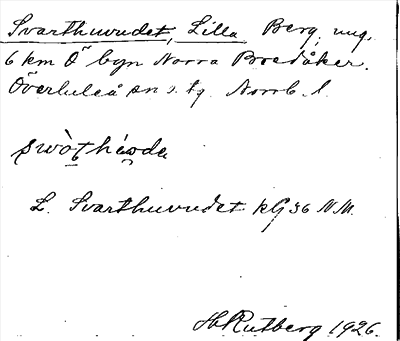 Svarthuvudet, Lilla Berg, ung.
6 km Ö byn Norra Bredåker.
Överluleå sn s. tg. Norrb. l.
L. Svarthuvudet kG 36 N.M.
H Rutberg 1926.